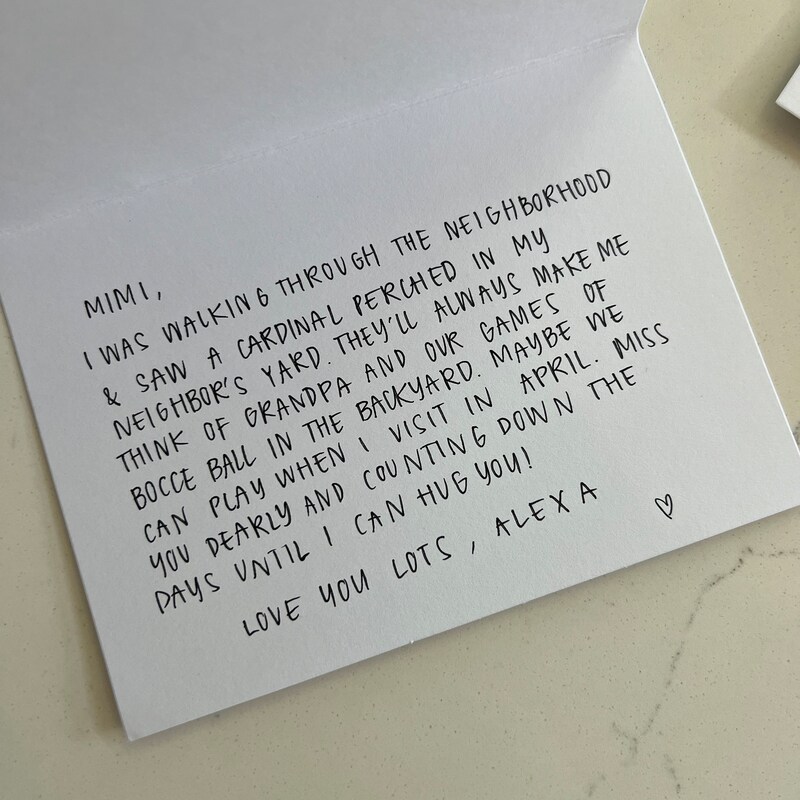 MIMI,
I WAS WALKING THROUGH THE NEIGHBORHOOD
& SAW A CARDINAL PERCHED IN MY
NEIGHBOR'S YARD. THEY'LL ALWAYS MAKE ME
THINK OF GRANDPA AND OUR GAMES OF
BOCCE BALL IN THE BACKYARD. MAYBE WE
CAN PLAY WHEN I VISIT IN APRIL. MISS
YOU DEARLY AND COUNTING DOWN THE
DAYS UNTIL I CAN HUG YOU!
LOVE YOU LOTS, ALEXA ♡